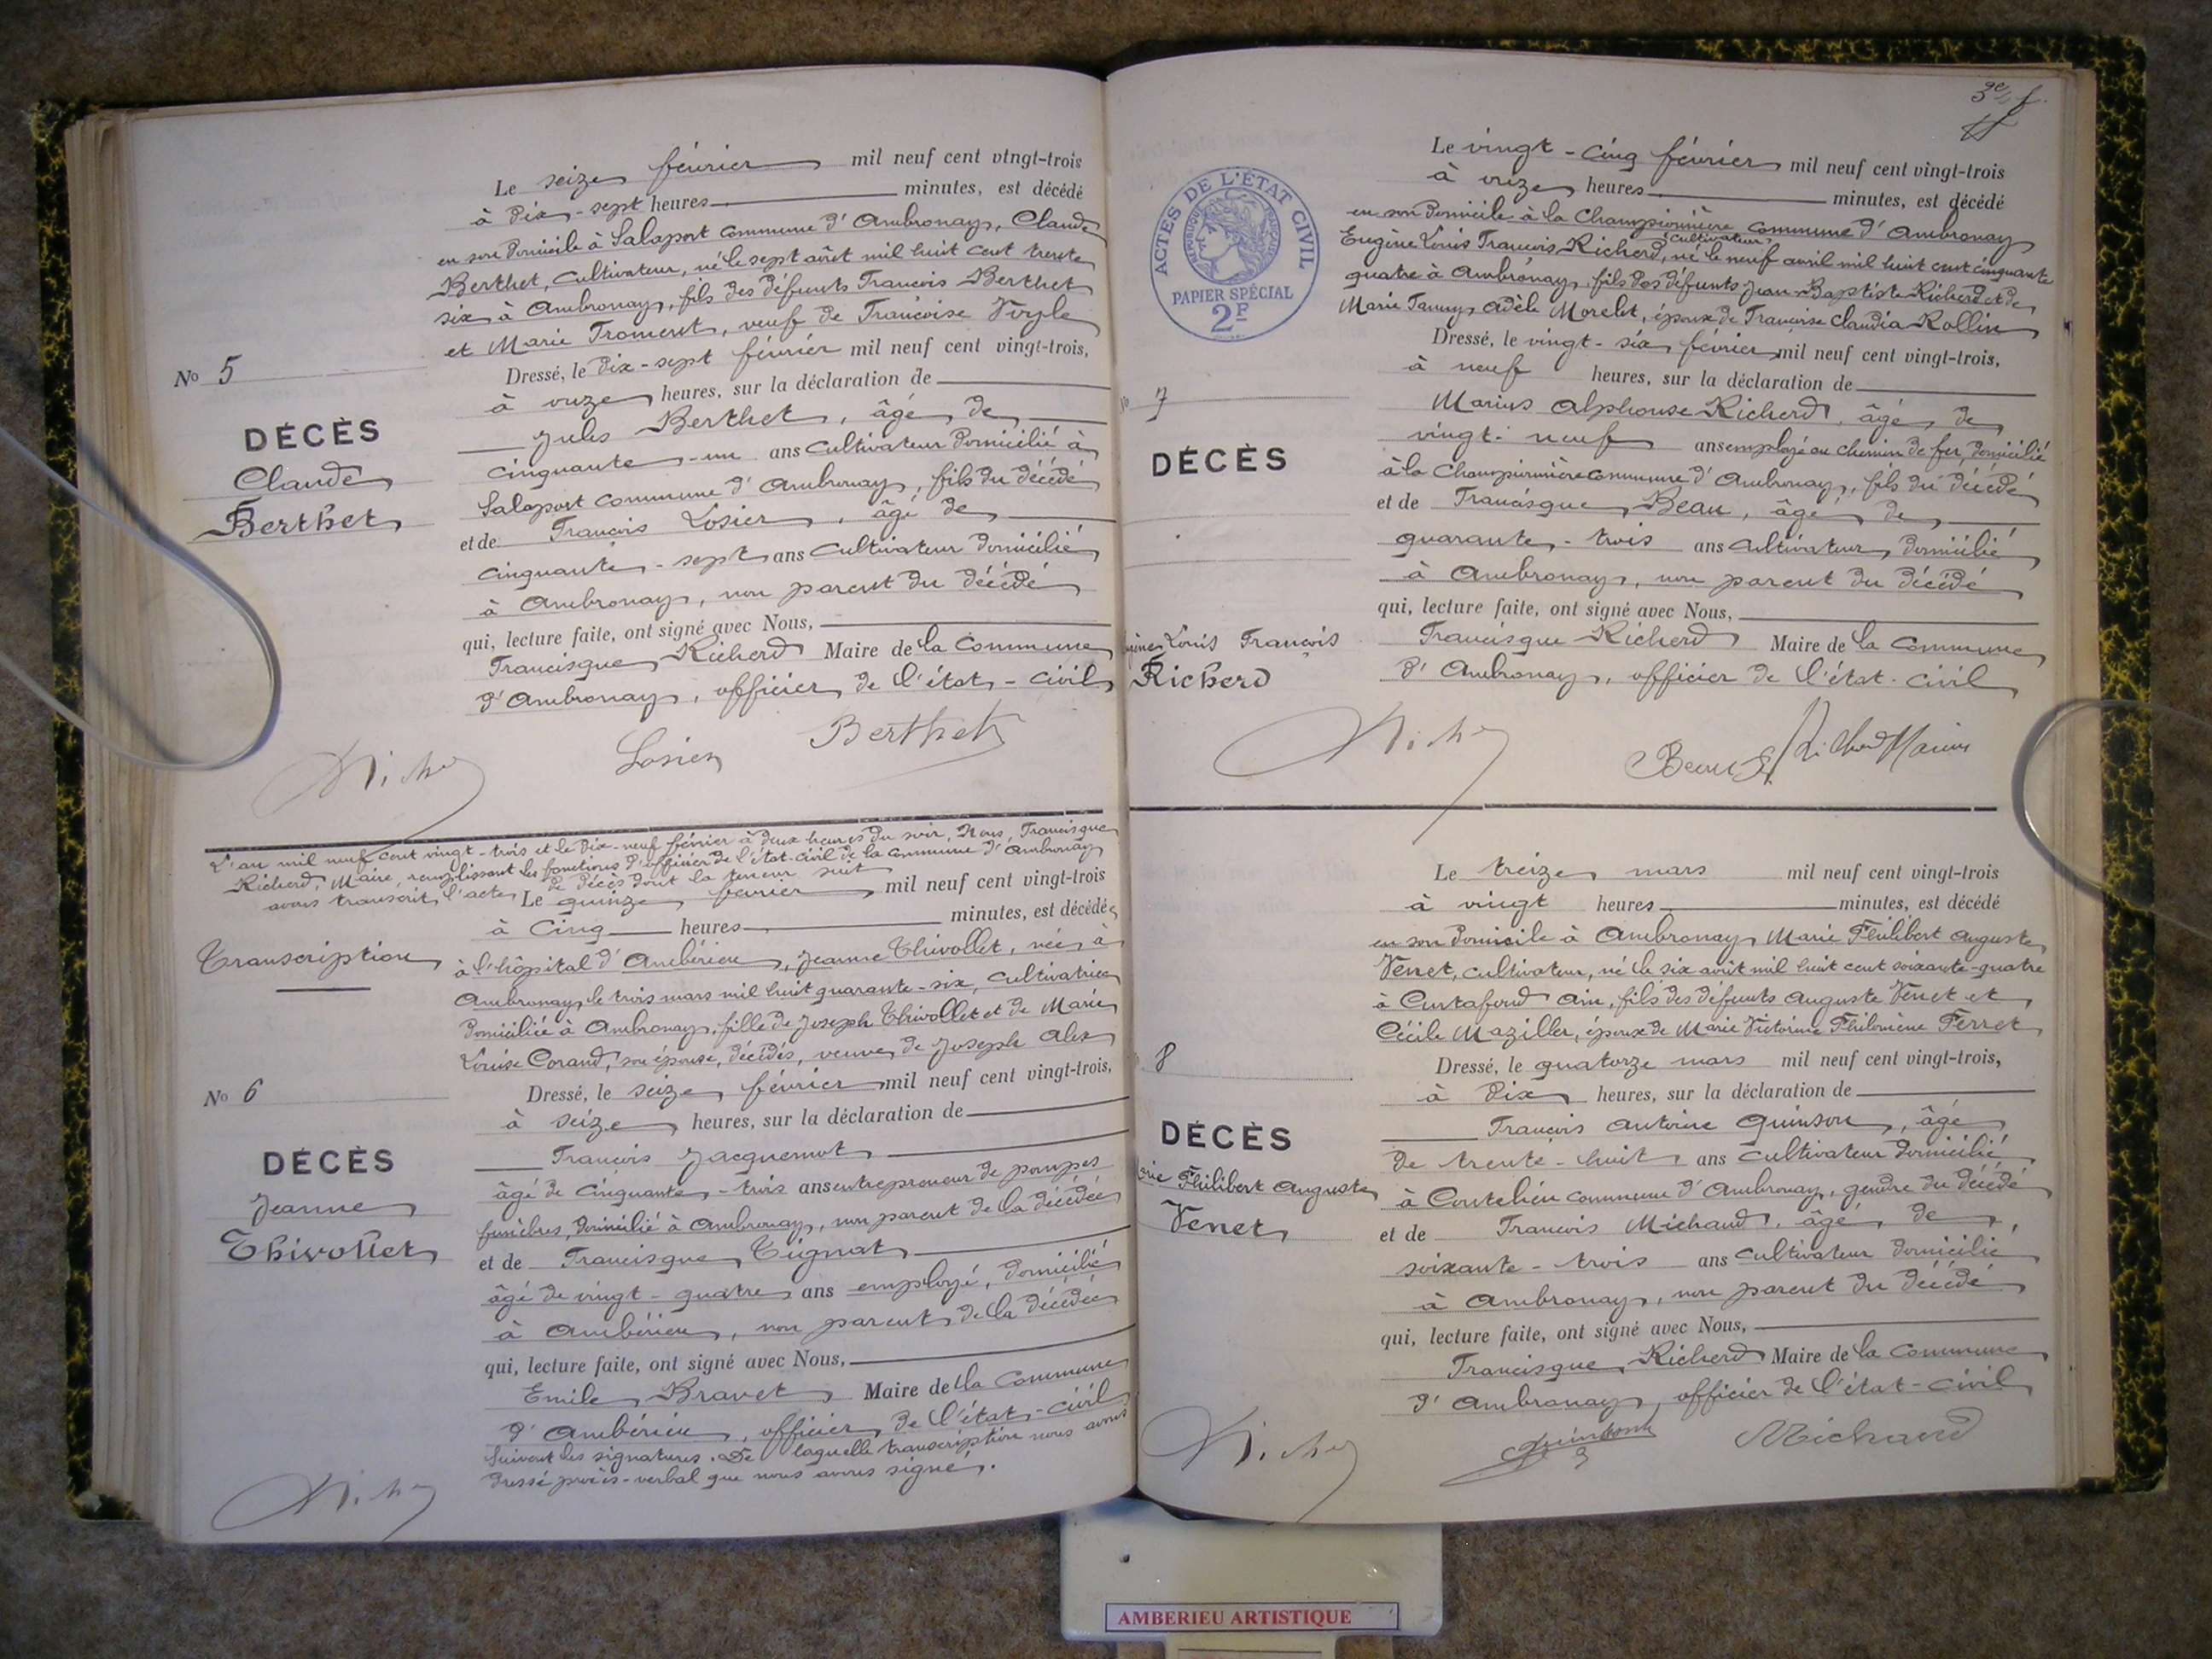 Le seize février mil neuf cent vingt-trois
à dix-sept heures minutes, est décédé
en son domicile à Salaport commune d'Ambronay, Claude
Berthet, cultivateur, né le sept août mil huit cent trente
six à Ambronay, fils des défunts François Berthet
et Marie Froment, veuf de Françoise
Dressé, le dix-sept février mil neuf cent vingt-trois,
à onze heures, sur la déclaration de
Jules Berthet, âgé de
cinquante-un ans cultivateur domicilié à
Salaport commune d'Ambronay, fils du décédé
et de François Losier, âgé de
cinquante-sept ans cultivateur domicilié
à Ambronay, non parent du décédé
qui, lecture faite, ont signé avec Nous,
Francisque Richerd Maire de la Commune
d'Ambronay, officier de l'état-civil
No 5
DÉCÈS
Claude
Berthet
Losier Berthet
L'an mil neuf cent vingt-trois et le dix-neuf février à deux heures du soir, Nous, Francisque
Richerd, Maire, remplissant les fonctions d'officier de l'état-civil de la commune d'Ambronay
avons transcrit l'acte de décès dont la teneur suit
Le quinze février mil neuf cent vingt-trois
à cinq heures minutes, est décédée
Transcription
à l'hôpital d'Ambérieu, Jeanne Thivollet, née à
Ambronay, le trois mars mil huit quarante-six, cultivatrice
domiciliée à Ambronay, fille de Joseph Thivollet et de Marie
Louise Corand, son épouse, décédés, veuve de Joseph Alex
Dressé, le seize février mil neuf cent vingt-trois,
à seize heures, sur la déclaration de
François Jacquemot
âgé de cinquante-trois ans entrepreneur de pompes
funèbres, domicilié à Ambronay, non parent de la décédée
et de Francisque Tignat
âgé de vingt-quatre ans employé, domicilié
à Ambérieu, non parent de la décédée
qui, lecture faite, ont signé avec Nous,
Emile Bravet Maire de la Commune
d'Ambérieu, officier de l'état-civil
Suivent les signatures. De laquelle transcription nous avons
dressé procès-verbal que nous avons signé.
No 6
DÉCÈS
Jeanne
Thivollet
3e f
ACTES DE L'ÉTAT CIVIL
RÉPUBLIQUE FRANÇAISE
PAPIER SPÉCIAL
2F
Le vingt-cinq février mil neuf cent vingt-trois
à onze heures minutes, est décédé
en son domicile à la Championnière commune d'Ambronay
Eugène Louis François Richerd, cultivateur, né le neuf avril mil huit cent cinquante
quatre à Ambronay, fils des défunts Jean-Baptiste Richerd et de
Marie Fanny Adèle Morelet, époux de Françoise Claudia Rollin
Dressé, le vingt-six février mil neuf cent vingt-trois,
à neuf heures, sur la déclaration de
Marius Alphonse Richerd, âgé de
vingt-neuf ans employé au chemin de fer, domicilié
à la Championnière commune d'Ambronay, fils du décédé
et de Francisque Beau, âgé de
quarante-trois ans cultivateur, domicilié
à Ambronay, non parent du décédé
qui, lecture faite, ont signé avec Nous,
Francisque Richerd Maire de la Commune
d'Ambronay, officier de l'état-civil
7
DÉCÈS
Louis François
Richerd
Beau Richerd Marius
Le treize mars mil neuf cent vingt-trois
à vingt heures minutes, est décédé
en son domicile à Ambronay Marie Philibert Auguste
Venet, cultivateur, né le six août mil huit cent soixante-quatre
à Curtafond Ain, fils des défunts Auguste Venet et
Cécile Maziller, époux de Marie Victorine Philomène Ferret
Dressé, le quatorze mars mil neuf cent vingt-trois,
à dix heures, sur la déclaration de
François Antoine Quinson, âgé
de trente-huit ans cultivateur domicilié
à Coutelieu commune d'Ambronay, gendre du décédé
et de François Michaud, âgé de
soixante-trois ans cultivateur domicilié
à Ambronay, non parent du décédé
qui, lecture faite, ont signé avec Nous,
Francisque Richerd Maire de la Commune
d'Ambronay, officier de l'état-civil
8
DÉCÈS
Philibert Auguste
Venet
Quinson Michaud
AMBERIEU ARTISTIQUE